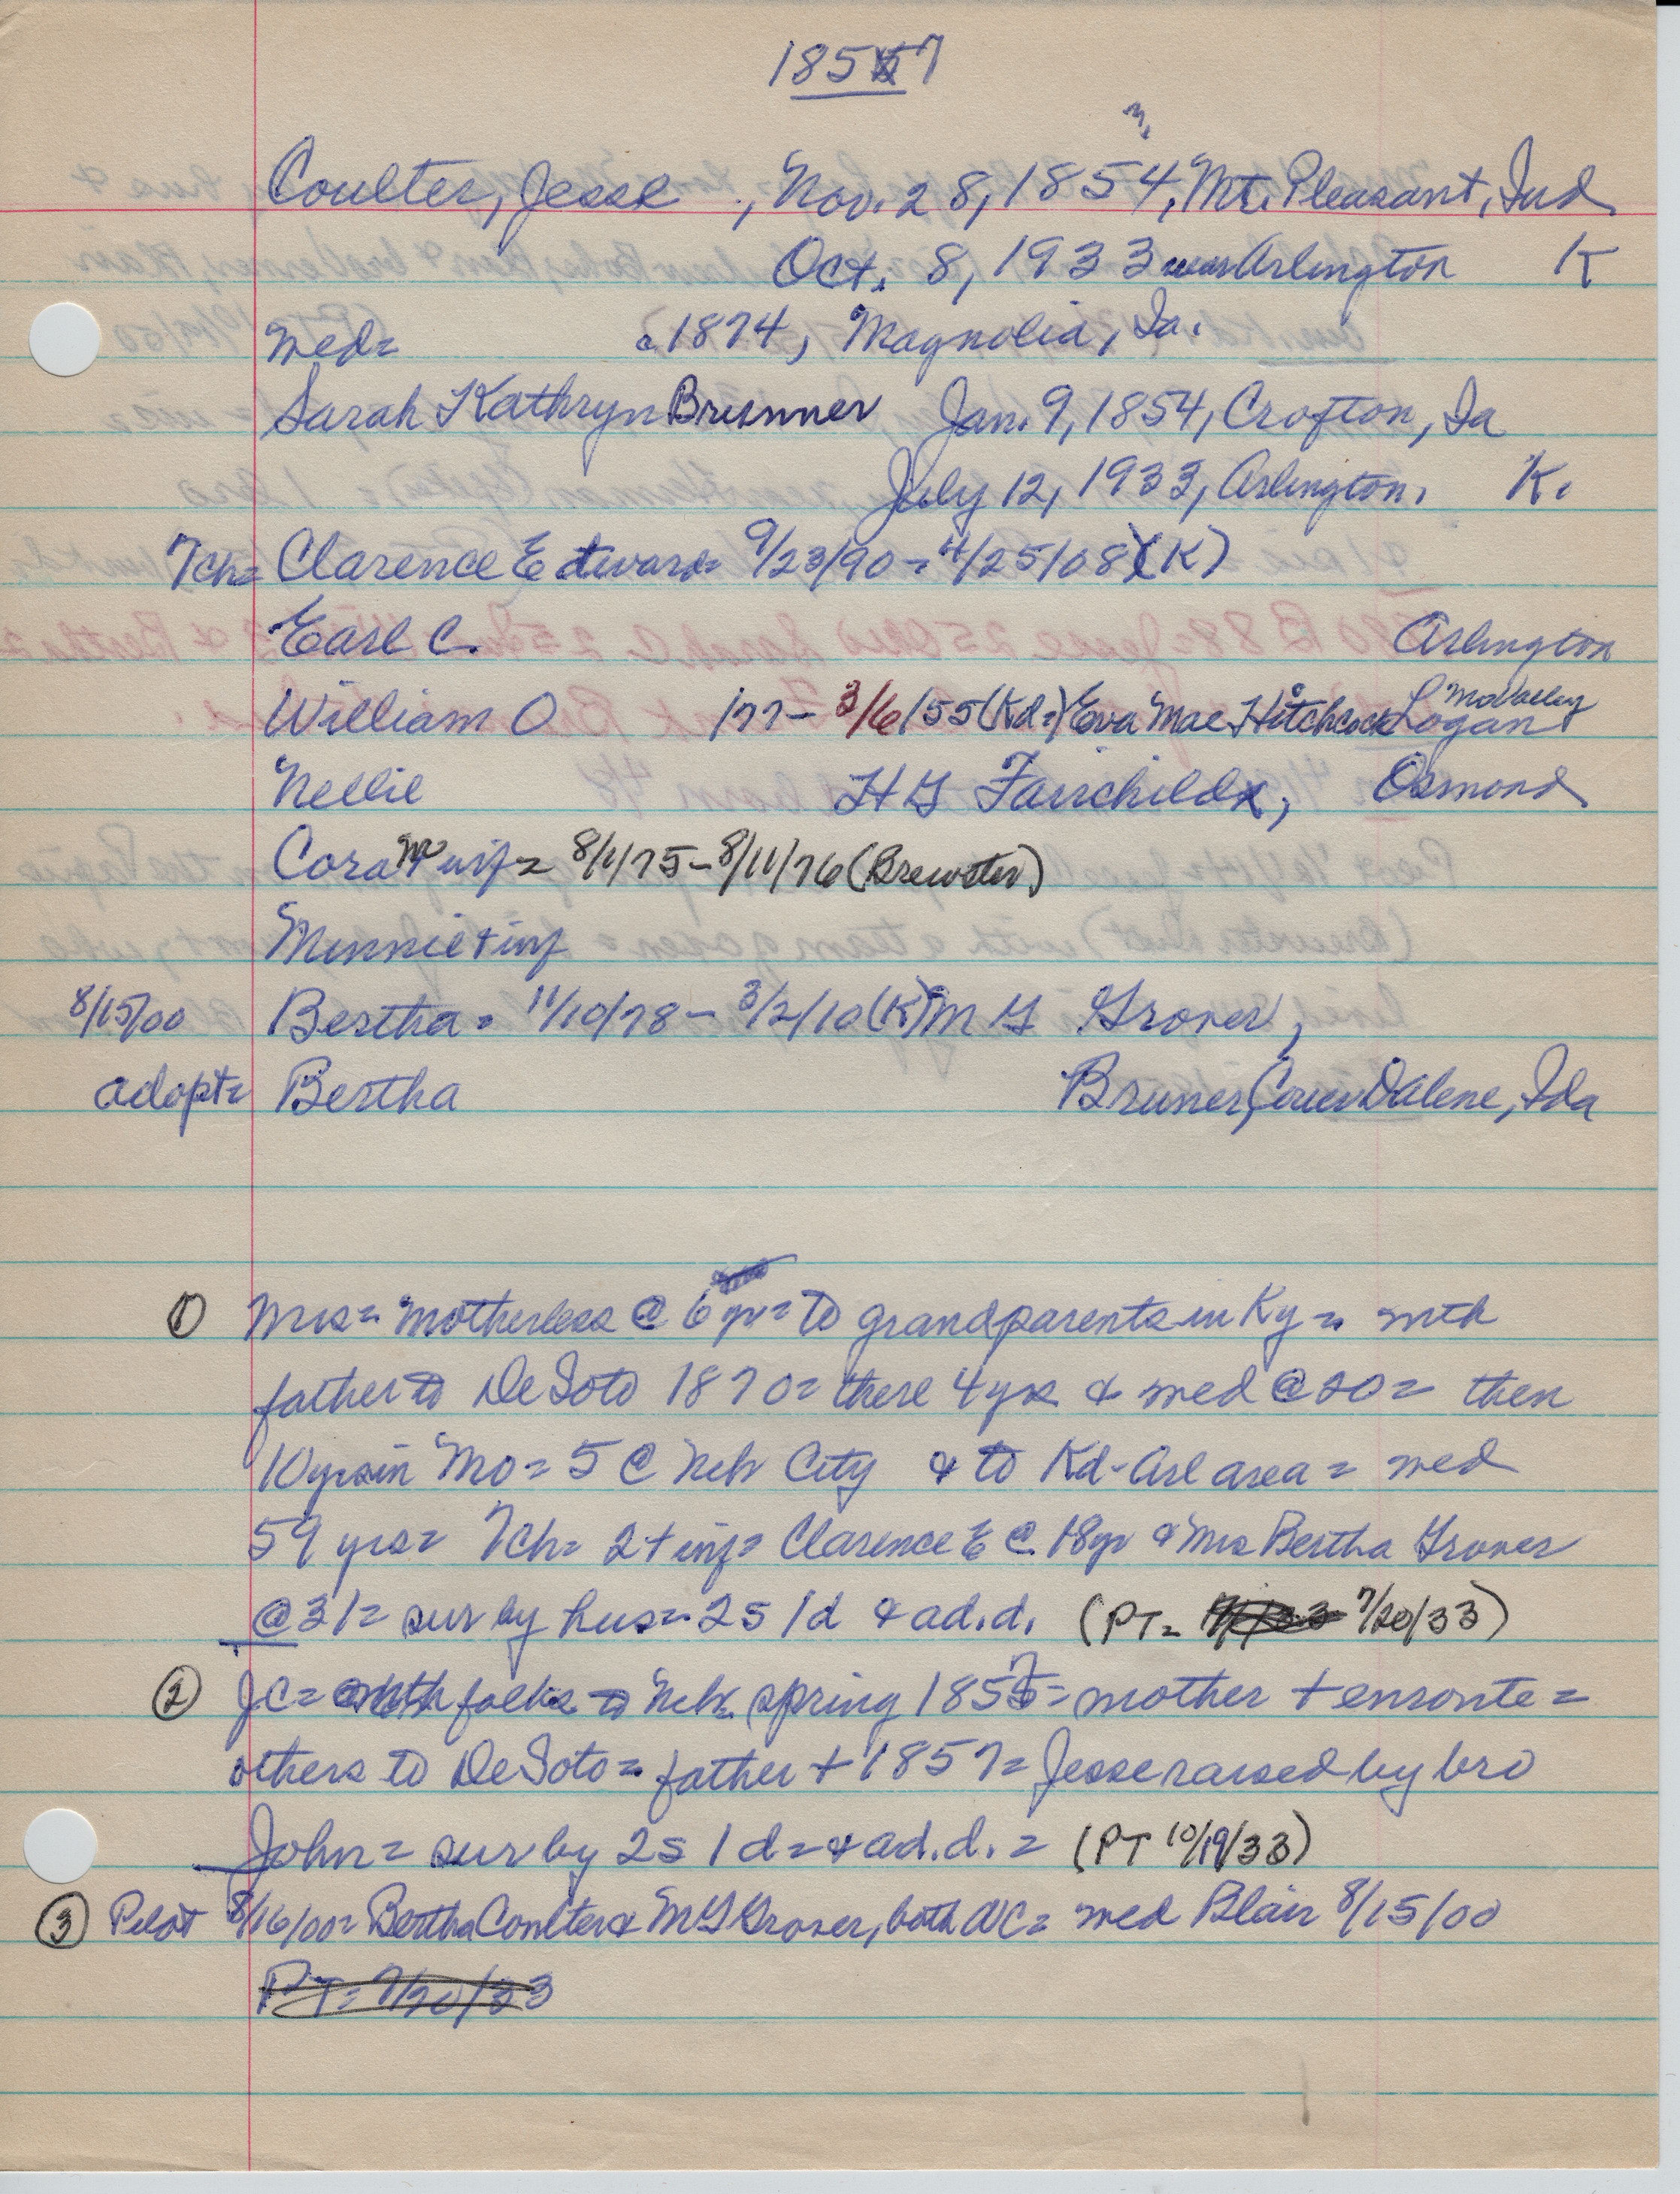 1857
3
Coulter, Jesse ., Nov. 28, 1854, Mt. Pleasant, Ind
Oct. 8, 1933 near Arlington K
med= c1874, Magnolia, Ia.
Sarah Kathryn Brunner Jan. 9, 1854, Crofton, Ia
July 12, 1933, Arlington. K.
7ch= Clarence Edward= 9/23/90 - 4/25/08 (K)
Earl C. Arlington
William O 177- 3/6/55 (Kd=) Eva Mae Hitchcock Logan MoValley
Nellie H G Fairchild, Osmond
Cora M + inf= 8/1/75-8/11/76 (Brewster)
Minnie + inf
8/15/00 Bertha= 11/10/78- 3/2/10 (K) M G Grover,
adopt= Bertha Bruner, Couer D Alene, Ida
① Mrs= motherless @ 6 yr= to grandparents in Ky= with
father to DeSoto 1870= there 4 yrs & med @ 20= then
10 yrs in Mo= 5 @ Neb City & to Kd-Arl area= med
59 yrs= 7ch= 2 + inf= Clarence E @ 18 yr & Mrs Bertha Grover
@ 31= sur by hus= 2s 1d & ad. d. (PT= 7/20/33)
② JC= with folks to Neb. spring 1857= mother + enroute=
others to DeSoto= father + 1857= Jesse raised by bro
John= sur by 2s 1d= & ad. d.= (PT 10/19/33)
③ Pilot 8/16/00= Bertha Coulter & M G Grover, both WC= med Blair 8/15/00
PT= 7/20/33